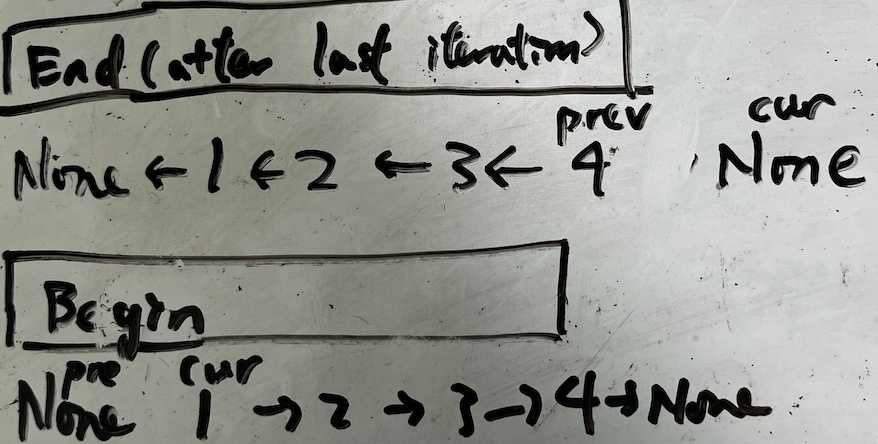 End (after last iteration)
prev cur
None ← 1 ← 2 ← 3 ← 4 None
Begin
pre cur
None 1 → 2 → 3 → 4 → None